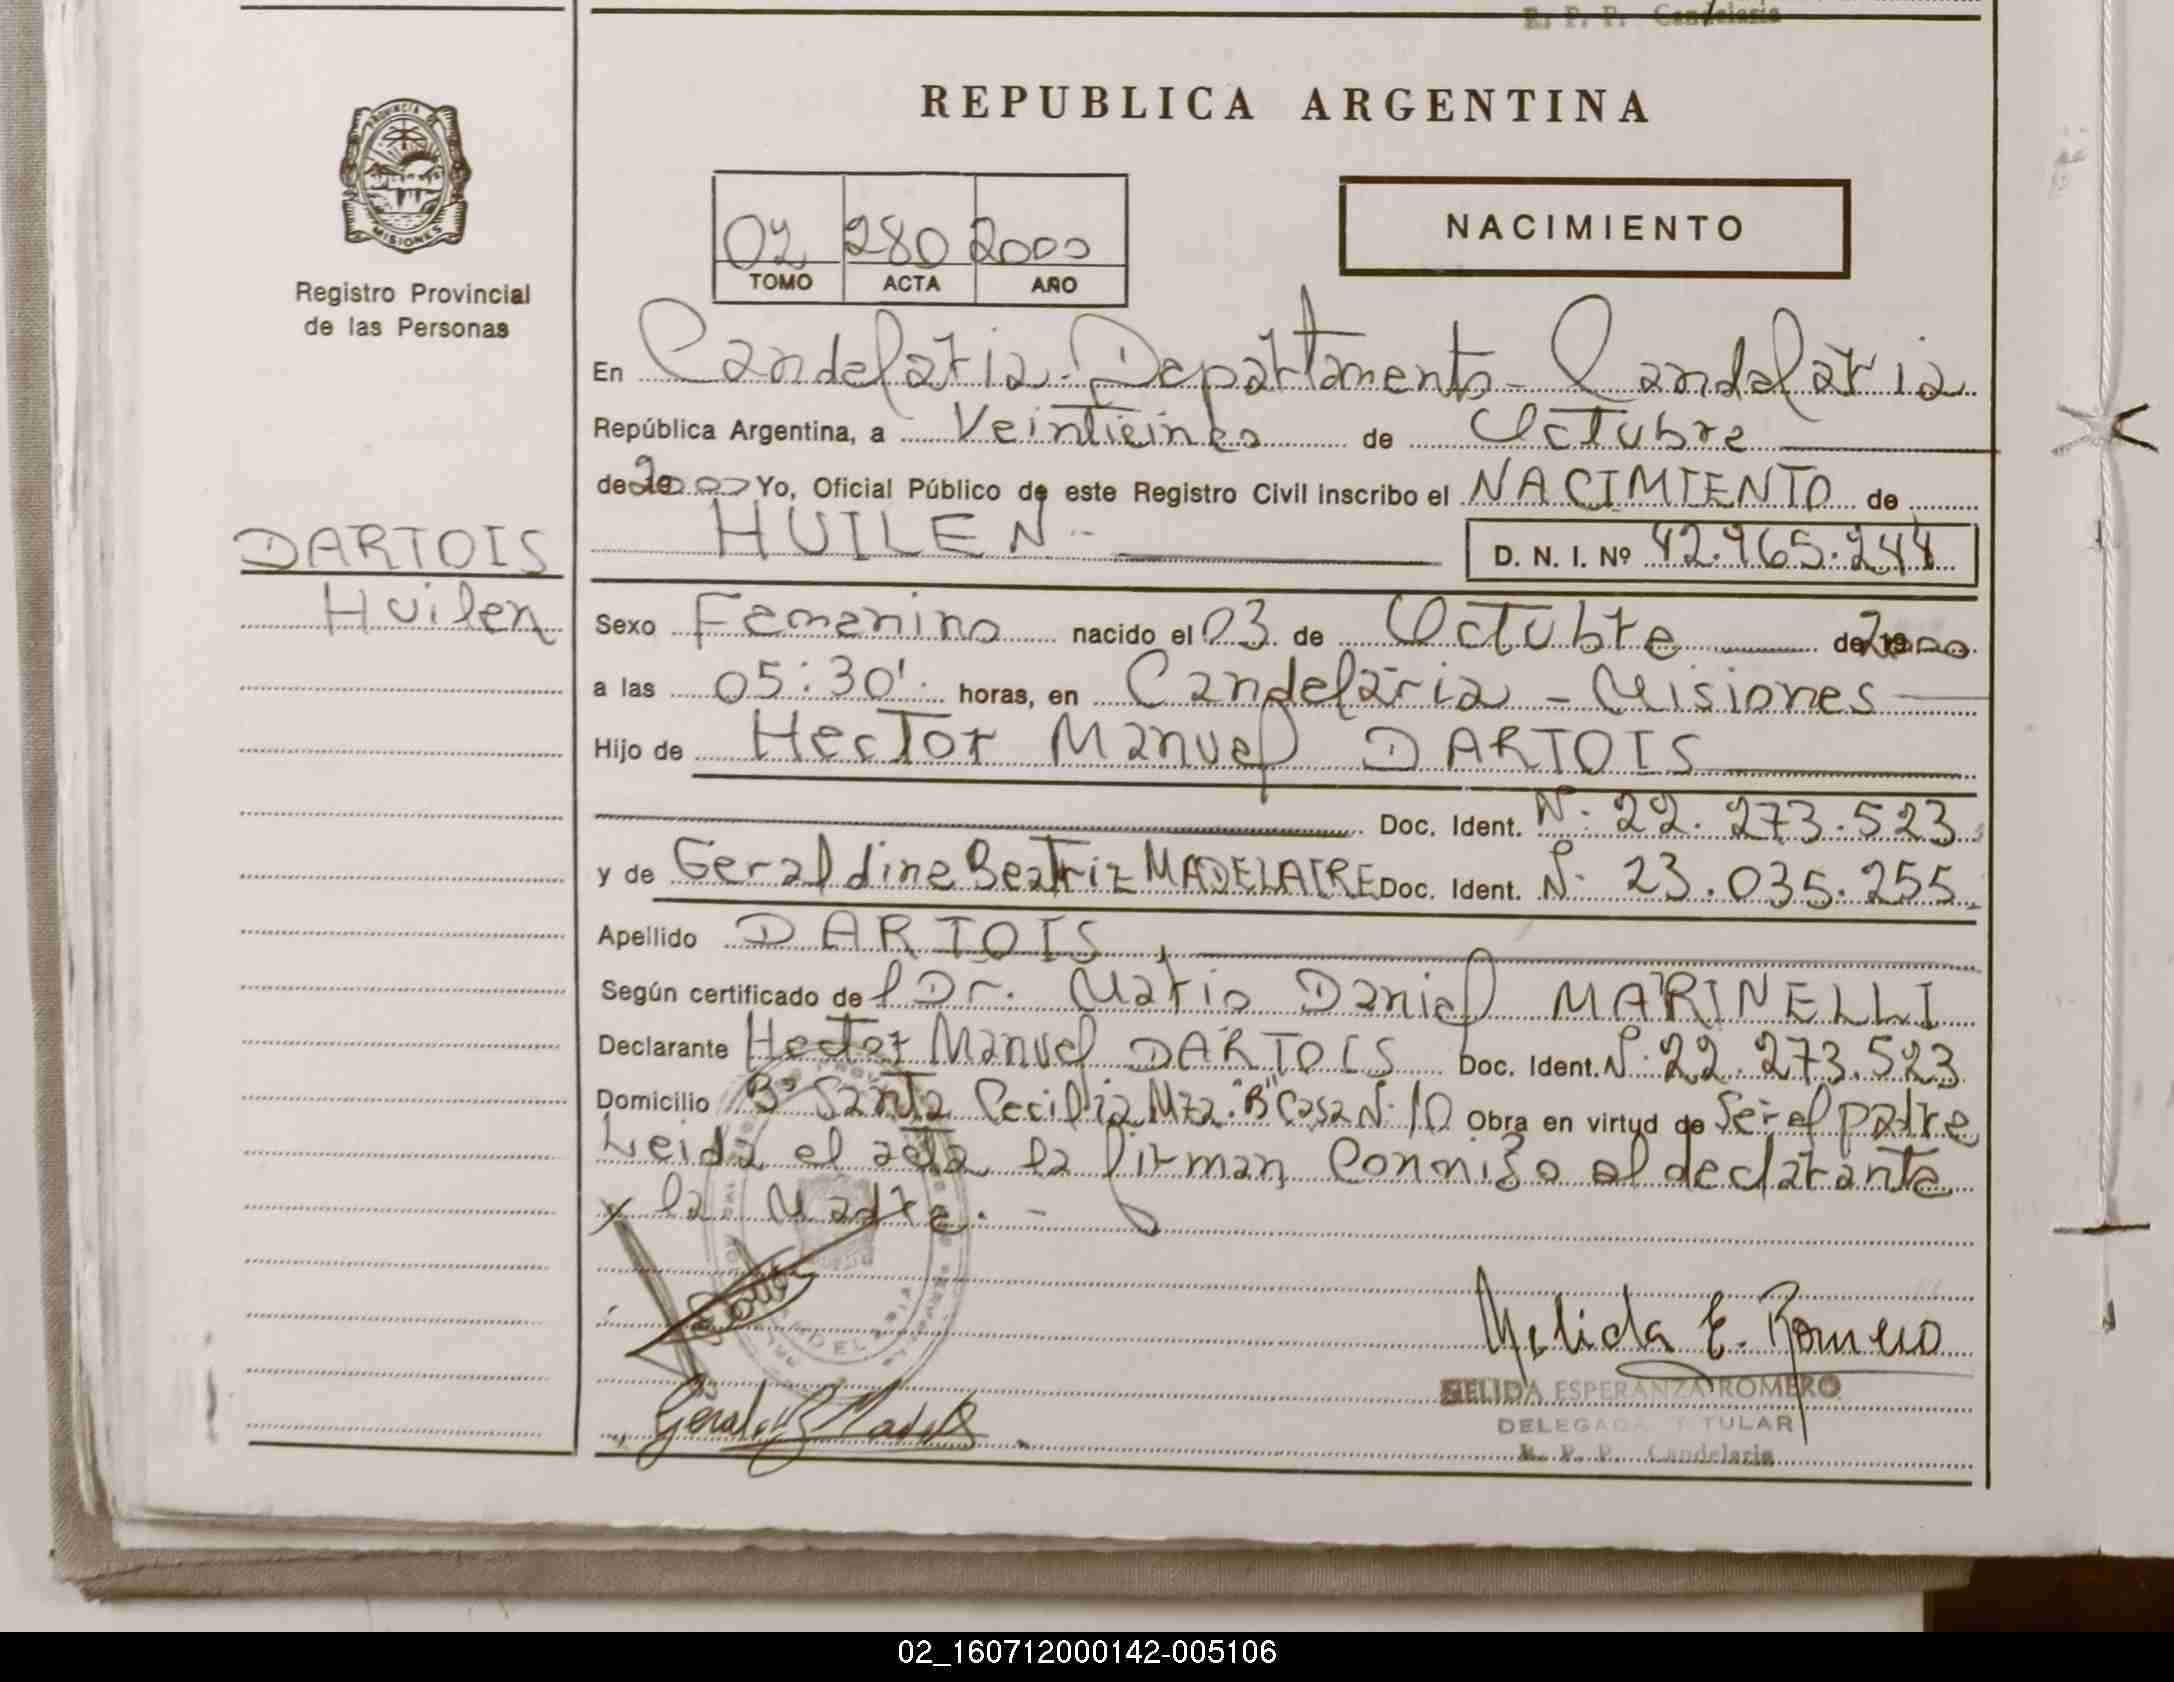 R. P. P. Candelaria
REPUBLICA ARGENTINA
PROVINCIA DE
MISIONES
Registro Provincial
de las Personas
02 280 2000
TOMO ACTA AÑO
NACIMIENTO
En Candelaria - Departamento - Candelaria
República Argentina, a Veinticinco de Octubre
de 2000 Yo, Oficial Público de este Registro Civil inscribo el NACIMIENTO de
HUILEN.-
D. N. I. Nº 42.965.244
DARTOIS
Huilen
Sexo Femenino nacido el 03 de Octubre de 2000
a las 05:30'. horas, en Candelaria - Misiones
Hijo de Hector Manuel DARTOIS
Doc. Ident. N· 22.273.523
y de Geraldine Beatriz MADELAIRE Doc. Ident. N· 23.035.255
Apellido DARTOIS,
Según certificado del Dr. Mario Daniel MARINELLI
Declarante Hector Manuel DARTOIS Doc. Ident. N· 22.273.523
Domicilio Bº Santa Cecilia Mza. "B" Casa N· 10 Obra en virtud de Ser el padre
Leida el acta la firman Conmigo el declarante
y la Madre. -
Nelida E. Romero
NELIDA ESPERANZA ROMERO
DELEGADA TITULAR
R. P. P. Candelaria
02_160712000142-005106